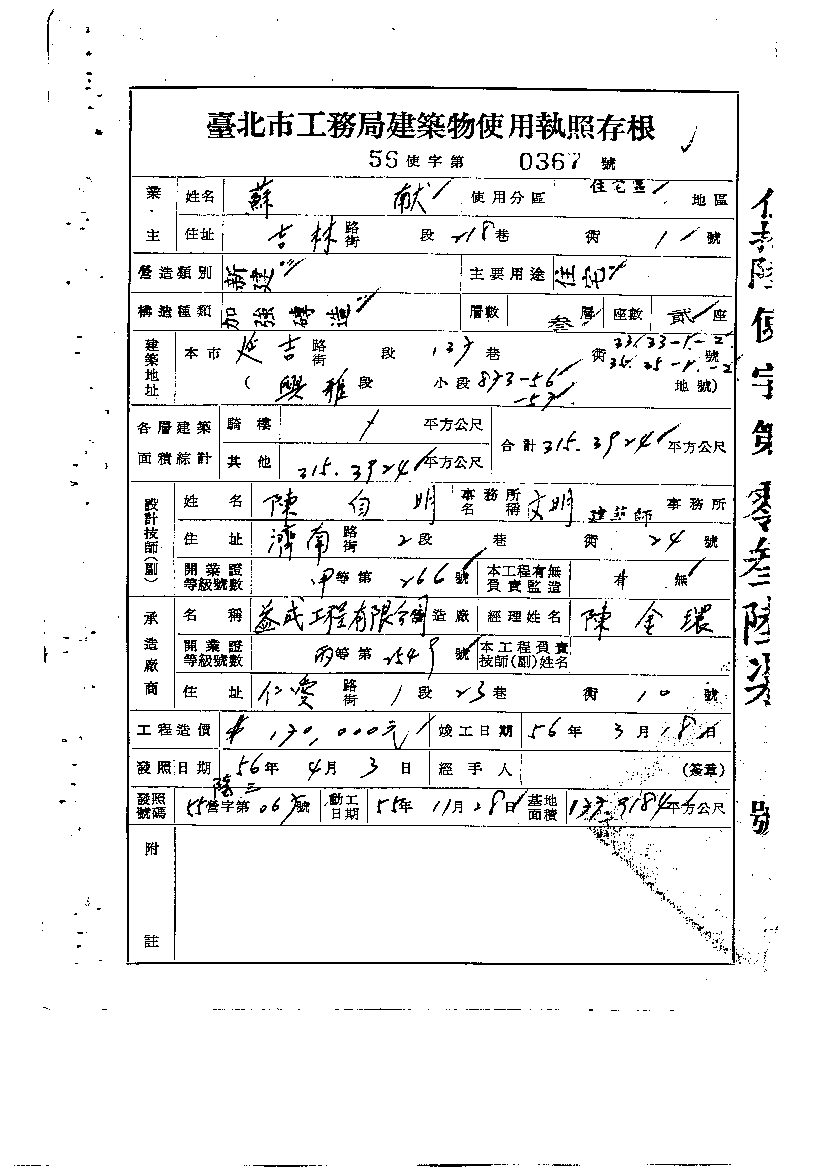 臺北市工務局建築物使用執照存根
56使字第 0367 號
業主 姓名 蘇 献 使用分區 住宅區 地區
住址 吉林 路街 段 218巷 衖 11號
營造類別 新建 主要用途 住宅
構造種類 加強磚造 層數 叁層 座數 貳座
建築地址 本市 延吉 路街 段 137巷 衖 33.33-1.-2. 35.35-1.-2 號
( 興雅段 小段 873-56 -57 地號)
各層建築面積綜計 騎樓 平方公尺 合計 315.3924 平方公尺
其他 315.3924 平方公尺
設計技師(副) 姓名 陳 明 事務所名稱 文明 建築師 事務所
住址 濟南 路街 2段 巷 衖 24號
開業證等級號數 甲等第 266號 本工程有無負責監造 有 無
承造廠商 名稱 益成工程有限公司 造廠 經理姓名 陳金環
開業證等級號數 丙等第 2549號 本工程負責技師(副)姓名
住址 仁愛 路街 1段 23巷 衖 10號
工程造價 $170,000元 竣工日期 56年 3月18日
發照日期 56年 4月 3日 經手人 (簽章)
發照號碼 55營字第 號 動工日期 55年 11月28日 基地面積 平方公尺
附註
伍陸使字第零叁陸柒號